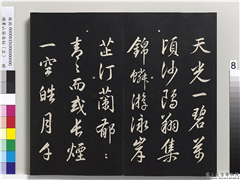 天光一碧萬
頃沙鷗翔集
錦鱗游泳岸
芷汀蘭郁〻
青〻而或長煙
一空皓月千
8